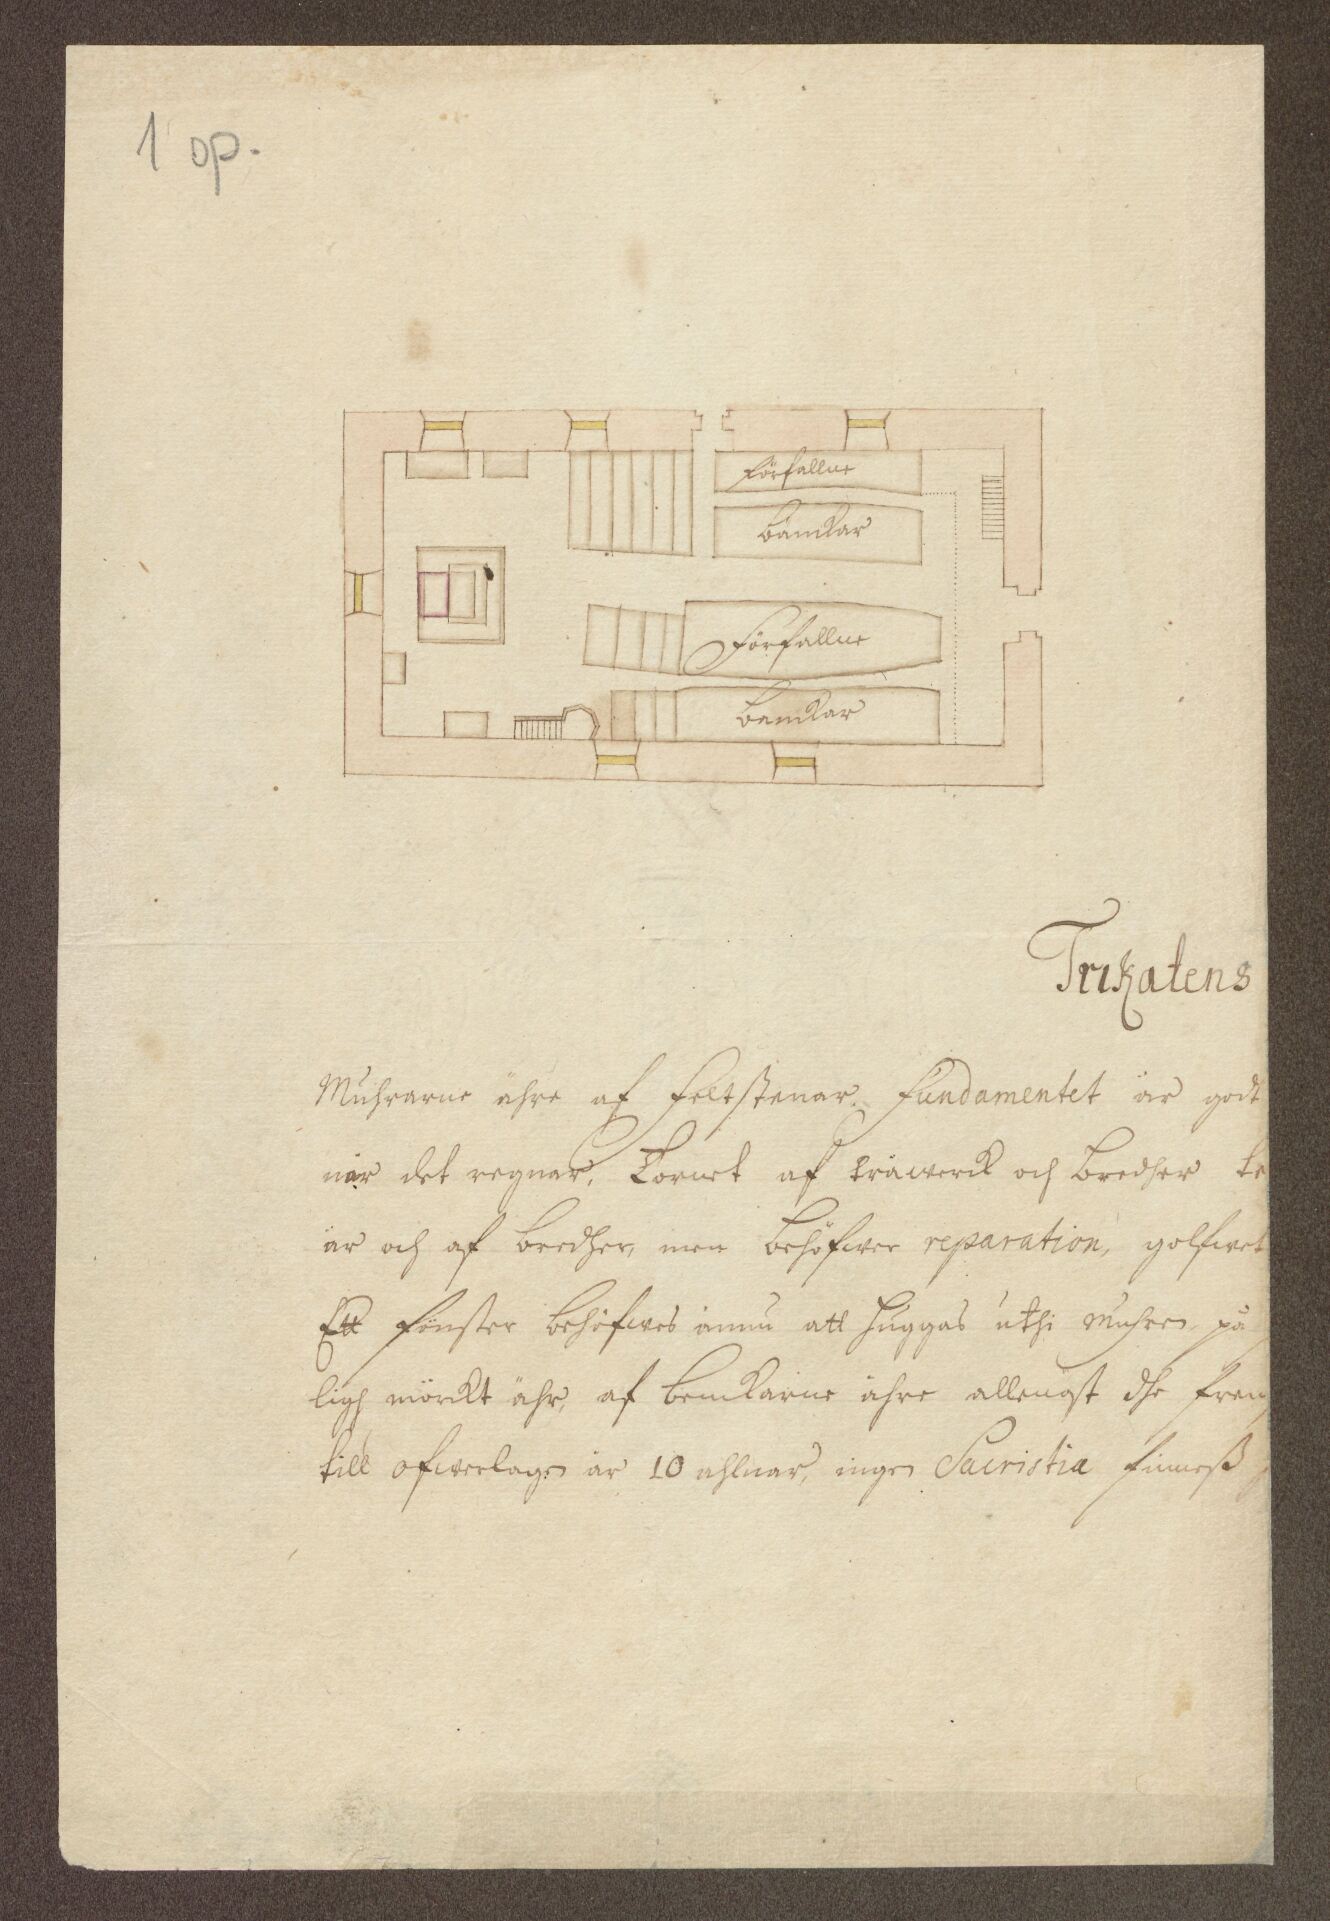 1 op.
Förfallne
Bänckar
Förfallne
Benckar
Trikatens
Muhrarne ähre af feltstenar. Fundamentet är godt
när det regnar, Tornet af träwerck och bredher
är och af bredher, men behöfwer reparation, golfwet
Ett fönster behöfwes ännu att huggas uthi Muhren på
ligh mörckt ähr, af benckarne ähre allenast dhe frem
till ofwerlagen är 10 ahlnar, ingen Sacristia finneß